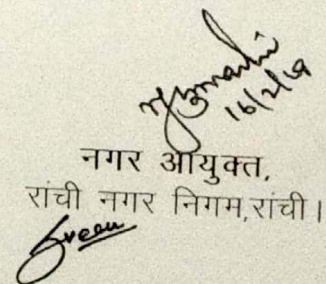 16/2/19
नगर आयुक्त,
रांची नगर निगम,रांची।